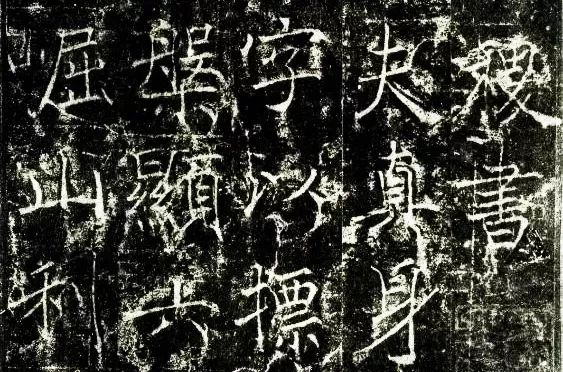 稷書
夫真身
字以標
槃顯六
崛山利